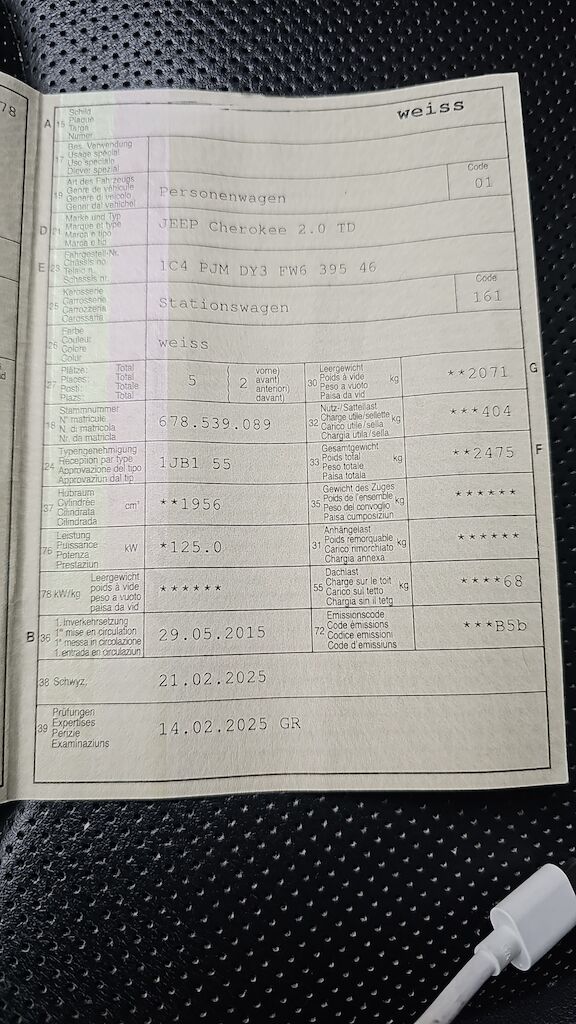 78
A 15 Schild
Plaque
Targa
Numer
weiss
17 Bes. Verwendung
Usage spécial
Uso speciale
Diever spezial
19 Art des Fahrzeugs
Genre de véhicule
Genere di veicolo
Gener dal vehichel
Personenwagen
Code
01
D 21 Marke und Typ
Marque et type
Marca e tipo
Marca e tip
JEEP Cherokee 2.0 TD
E 23 Fahrgestell-Nr.
Châssis no
Telaio n.
Schassis nr.
1C4 PJM DY3 FW6 395 46
25 Karosserie
Carrosserie
Carrozzeria
Carossaria
Stationswagen
Code
161
26 Farbe
Couleur
Colore
Colur
weiss
27 Plätze: Total
Places: Total
Posti: Totale
Plazs: Total
5
2
vorne)
avant)
anteriori)
davant)
30 Leergewicht
Poids à vide
Peso a vuoto
Paisa da vid
kg
**2071
G
18 Stammnummer
N° matricule
N. di matricola
Nr. da matricla
678.539.089
32 Nutz-/Sattellast
Charge utile/sellette
Carico utile/sella
Chargia utila/sella
kg
***404
24 Typengenehmigung
Réception par type
Approvazione del tipo
Approvaziun dal tip
1JB1 55
33 Gesamtgewicht
Poids total
Peso totale
Paisa totala
kg
**2475
F
37 Hubraum
Cylindrée
Cilindrata
Cilindrada
cm³
**1956
35 Gewicht des Zuges
Poids de l'ensemble
Peso del convoglio
Paisa cumposiziun
kg
******
76 Leistung
Puissance
Potenza
Prestaziun
kW
*125.0
31 Anhängelast
Poids remorquable
Carico rimorchiato
Chargia annexa
kg
******
78 kW/kg
Leergewicht
poids à vide
peso a vuoto
paisa da vid
******
55 Dachlast
Charge sur le toit
Carico sul tetto
Chargia sin il tetg
kg
****68
B 36 1. Inverkehrsetzung
1re mise en circulation
1a messa in circolazione
1. entrada en circulaziun
29.05.2015
72 Emissionscode
Code émissions
Codice emissioni
Code d'emissiuns
***B5b
38 Schwyz,
21.02.2025
39 Prüfungen
Expertises
Perizie
Examinaziuns
14.02.2025 GR